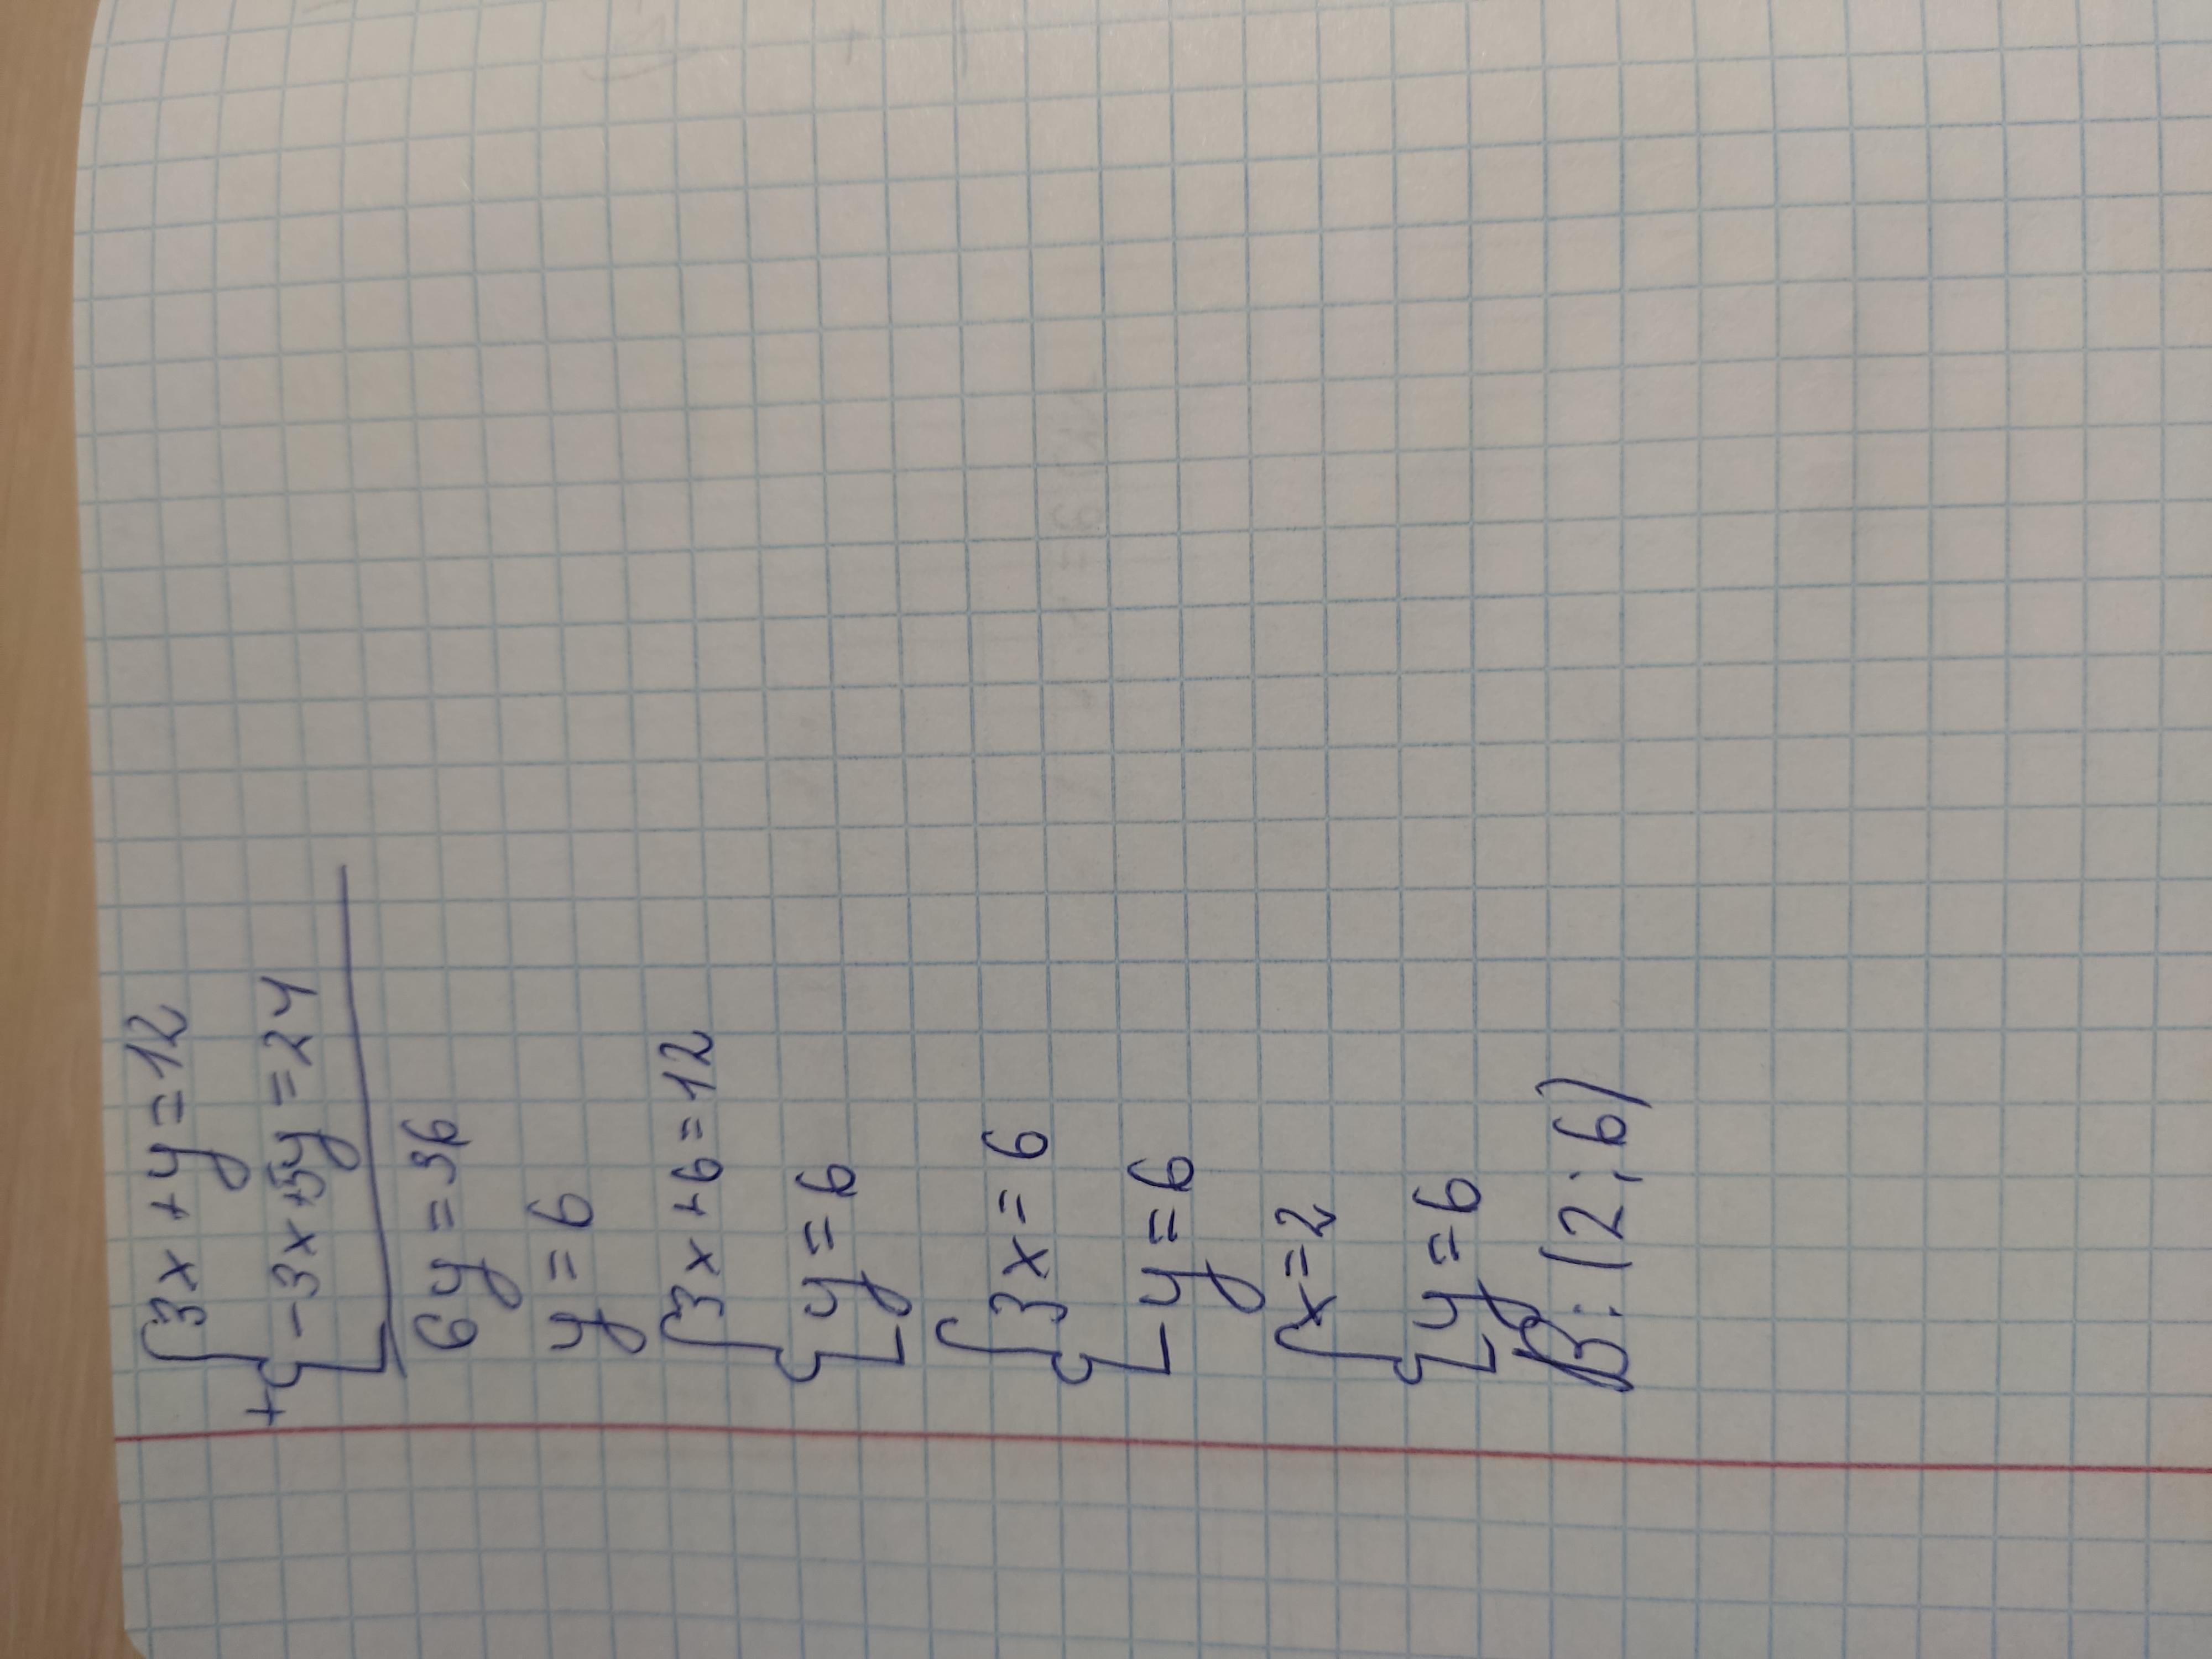 3x+y=12
+
-3x+5y=24
6y=36
y=6
3x+6=12
y=6
3x=6
y=6
x=2
y=6
В: (2;6)